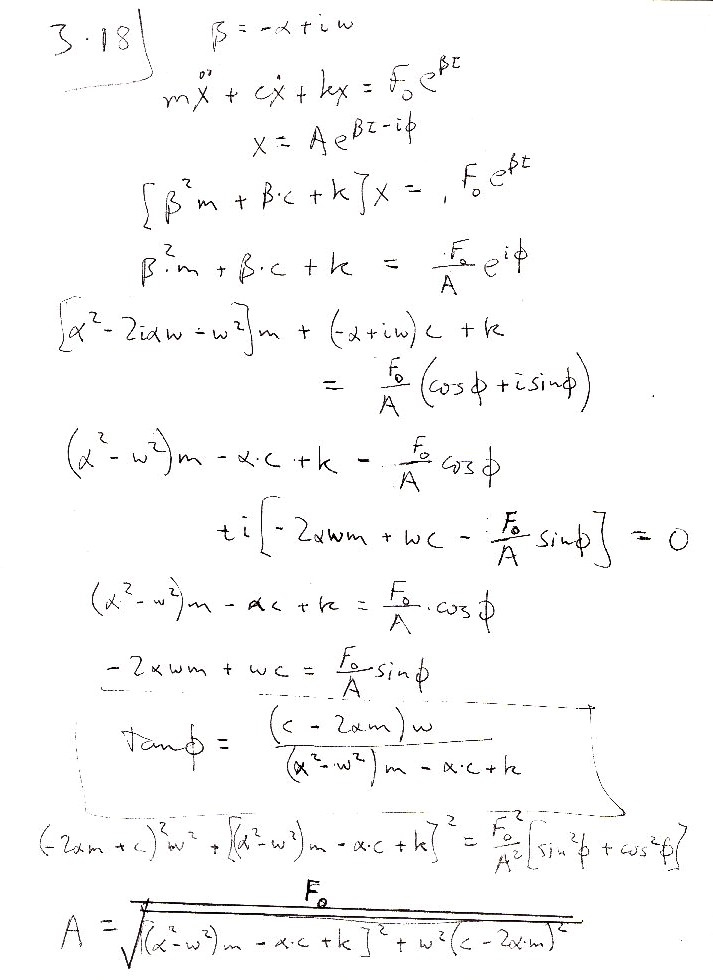 3.18 β = -α + iω
mẍ + cẋ + kx = F₀e^{βt}
x = A e^{βt-iφ}
[β²m + β·c + k]x = F₀e^{βt}
β²m + β·c + k = F₀/A e^{iφ}
[α² - 2iαω - ω²]m + (-α + iω)c + k
= F₀/A (cosφ + i sinφ)
(α² - ω²)m - α·c + k - F₀/A cosφ
+ i[-2αωm + ωc - F₀/A sinφ] = 0
(α² - ω²)m - αc + k = F₀/A · cosφ
-2αωm + ωc = F₀/A sinφ
tanφ = (c - 2αm)ω / (α² - ω²)m - α·c + k
(-2αm + c)²ω² + [(α² - ω²)m - α·c + k]² = F₀²/A² [sin²φ + cos²φ]
A = F₀ / √[(α² - ω²)m - α·c + k]² + ω²(c - 2α·m)²